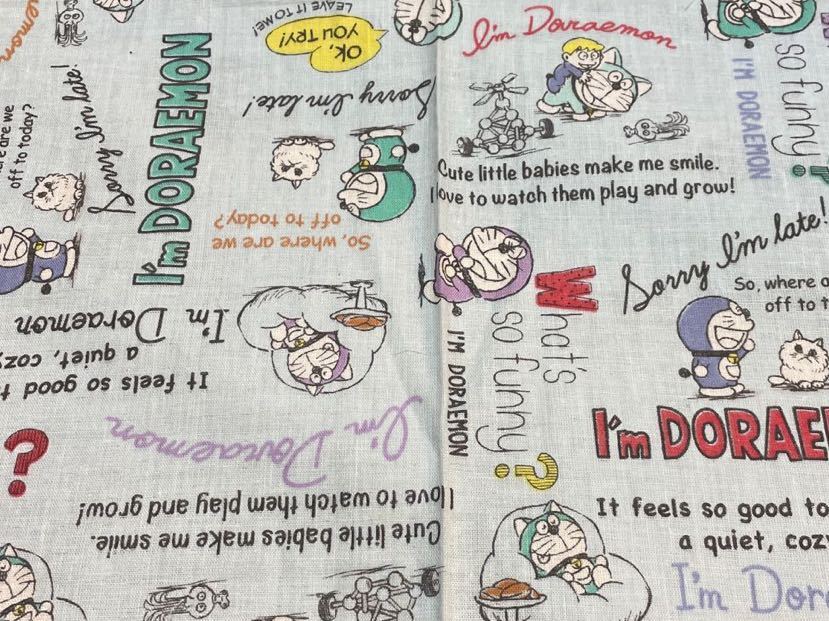 LEAVE IT TO ME!
OK,
YOU TRY!
Sorry I'm late!
So, where are we
off to today?
I'm DORAEMON
Sorry I'm late!
are we
off to today?
I'm Doraemon
It feels so good
a quiet, cozy
I'm Doraemon
Cute little babies make me smile.
I love to watch them play and grow!
?
I'm Doraemon
Cute little babies make me smile.
I love to watch them play and grow!
What's
so funny?
I'M DORAEMON
so funny?
I'M DORAEMON
Sorry I'm late!
So, where
off to
I'm DORAE
It feels so good to
a quiet, cozy
I'm Dor